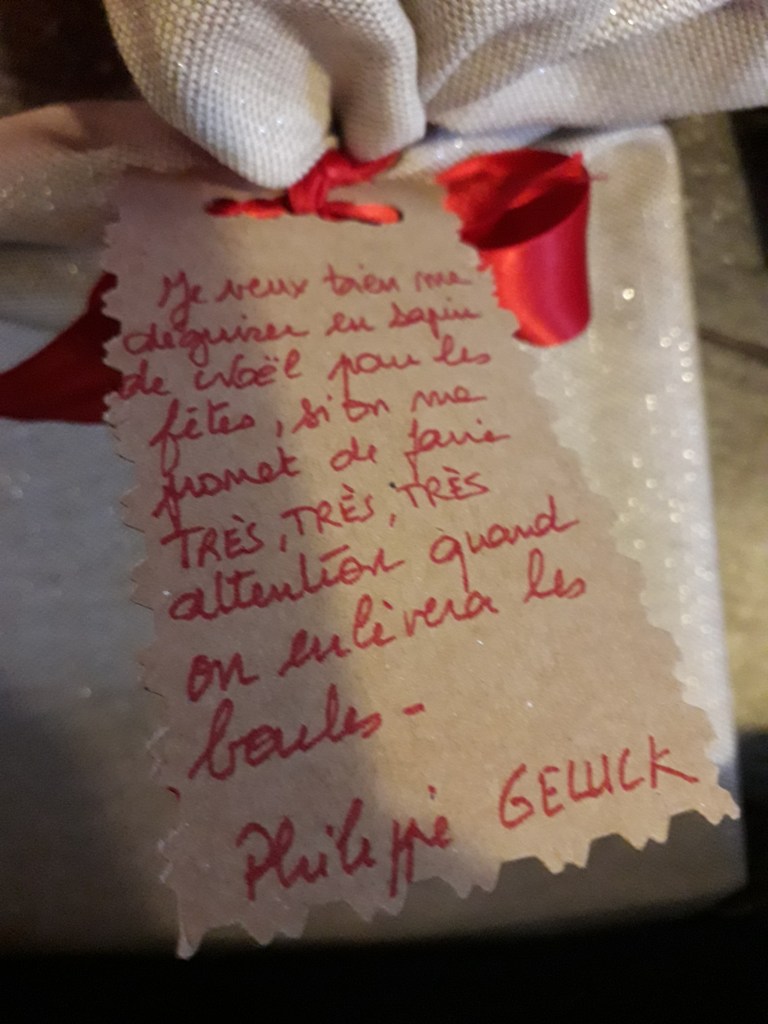 Je veux bien me
déguiser en sapin
de Noël pour les
fêtes, si on me
promet de faire
TRÈS, TRÈS, TRÈS
attention quand
on enlèvera les
boules -
Philippe GELUCK